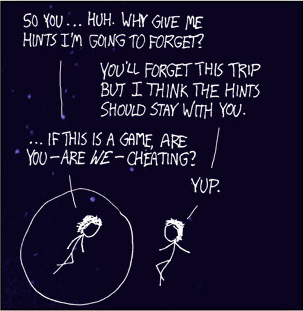 SO YOU... HUH. WHY GIVE ME
HINTS I'M GOING TO FORGET?
YOU'LL FORGET THIS TRIP
BUT I THINK THE HINTS
SHOULD STAY WITH YOU.
...IF THIS IS A GAME, ARE
YOU—ARE WE—CHEATING?
YUP.